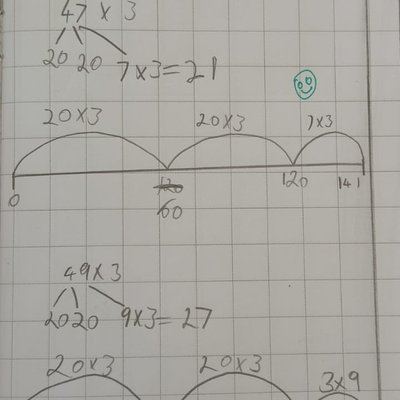 47 x 3
20 20 7x3=21
20x3 20x3 7x3
0 120 120 141
60
49x3
20 20 9x3=27
20x3 20x3 3x9